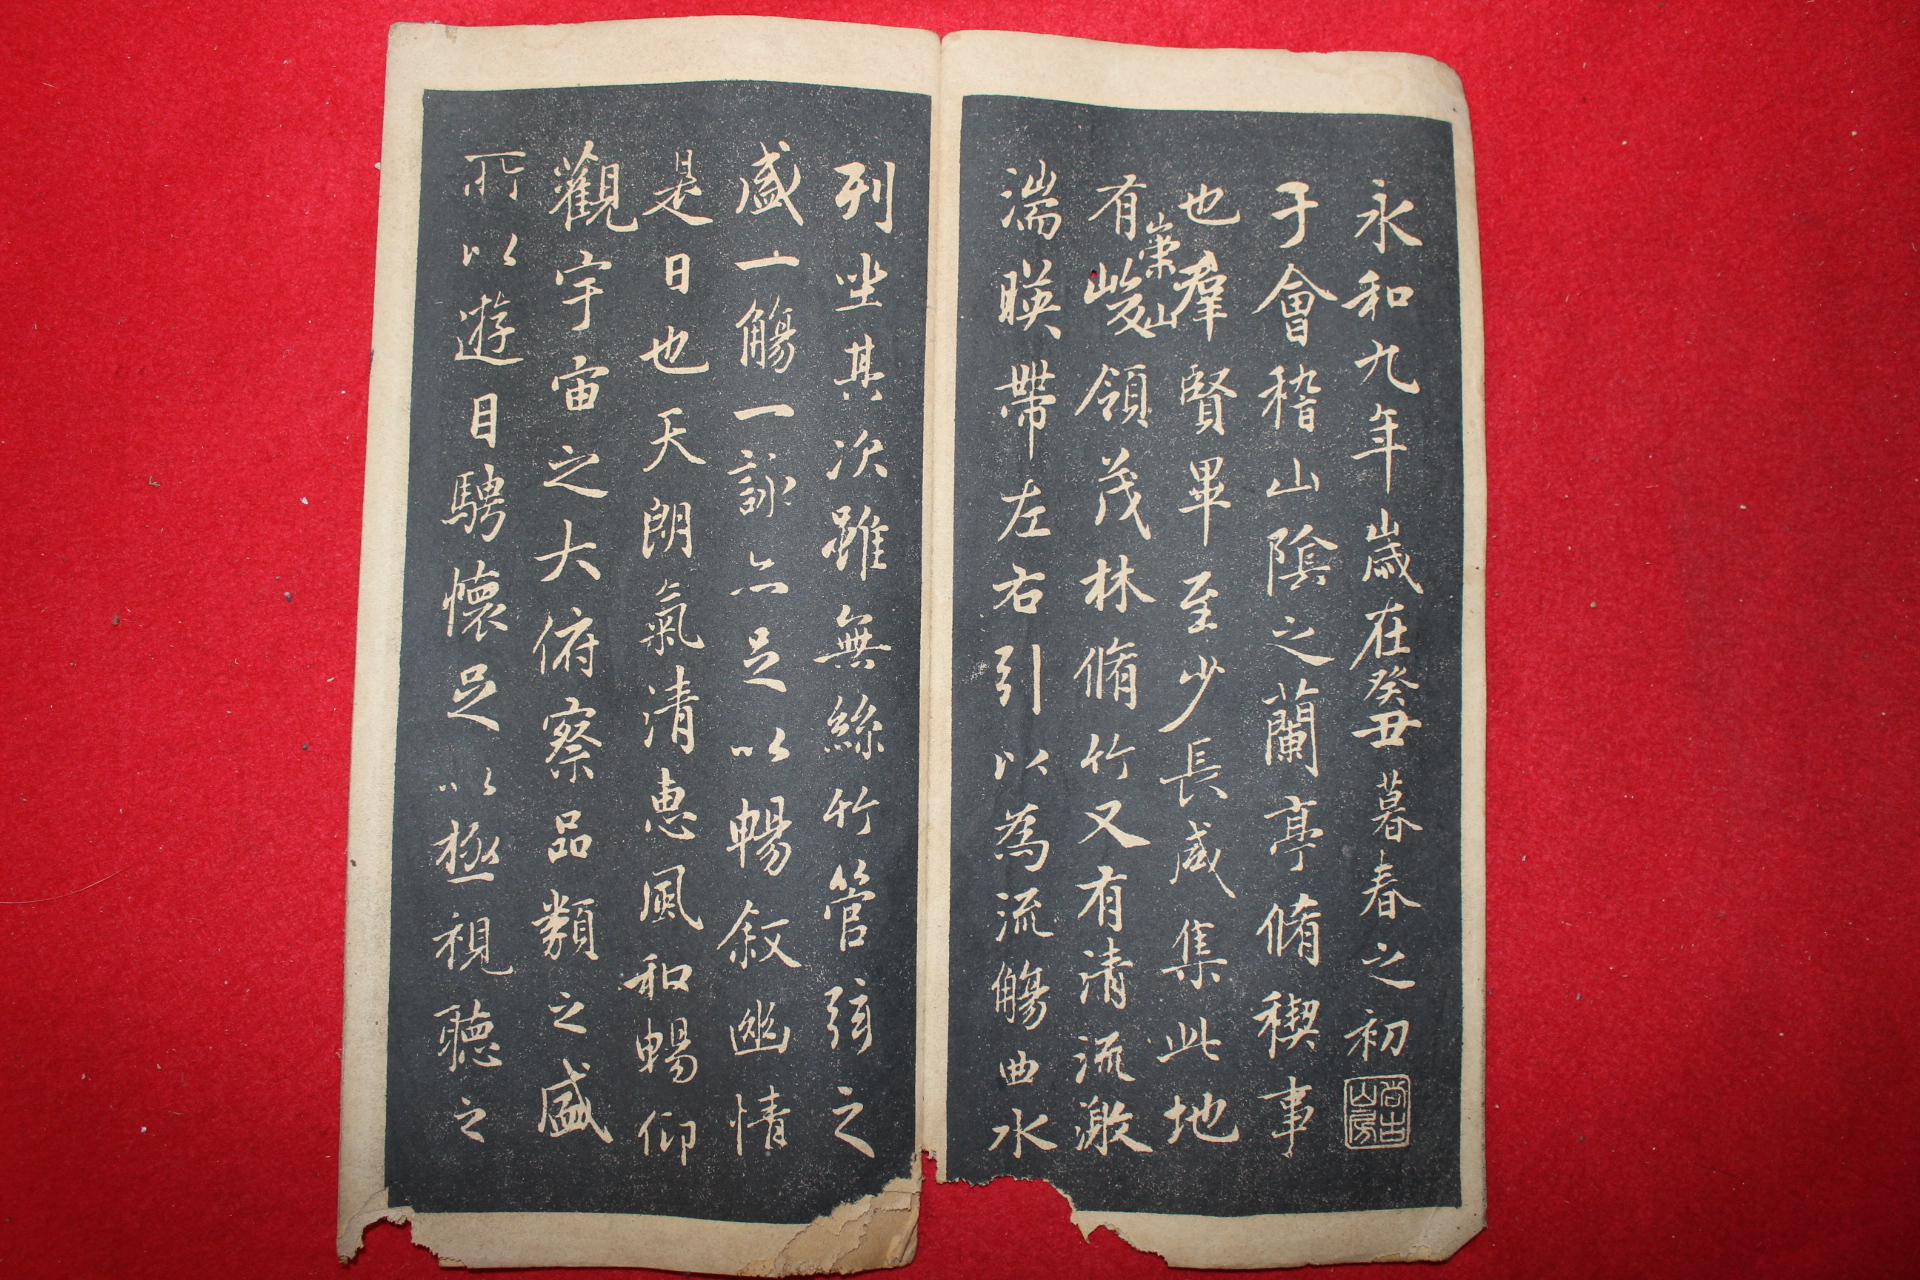 永和九年歲在癸丑暮春之初
尚古山房
于會稽山陰之蘭亭脩稧事
也羣賢畢至少長咸集此地
有崇山峻領茂林脩竹又有清流激
湍暎帶左右引以為流觴曲水
列坐其次雖無絲竹管弦之
盛一觴一詠亦足以暢敘幽情
是日也天朗氣清惠風和暢仰
觀宇宙之大俯察品類之盛
所以遊目騁懷足以極視聽之